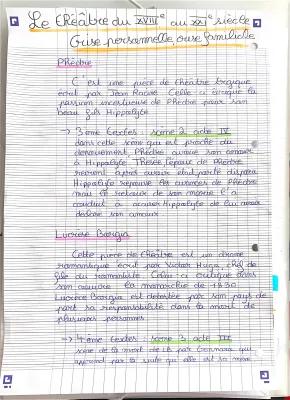 Le théâtre du XVIIe au XXIe siècle
Crise personnelle, crise familiale
Phèdre
C'est une pièce de théâtre tragique
écrit par Jean Racine Celle-ci évoque la
passion incestueuse de Phèdre pour son
beau fils Hippolyte
→ 3ème textes : scène 2 acte IV
dans cette scène qui est proche du
dénouement Phèdre avoue son amour
à Hippolyte Thésée l'époux de Phèdre
revient après avoir était porté disparu
Hippolyte repousse les avances de Phèdre
mais le retour de son mari l'a
conduit à accuser Hippolyte de lui avoir
déclaré son amour
Lucrèce Borgia
Cette pièce de théâtre est un drame
romantique écrit par Victor Hugo, chef de
file du romantisme Celui-ci critique dans
son œuvre la monarchie de 1830
Lucrèce Borgia est détestée par son pays de
part sa responsabilité dans la mort de
plusieurs personnes
→ 4ème textes : scène 3 acte III
scène de la mort de LB par Gennaro qui
apprend par la suite qu'elle est sa mère